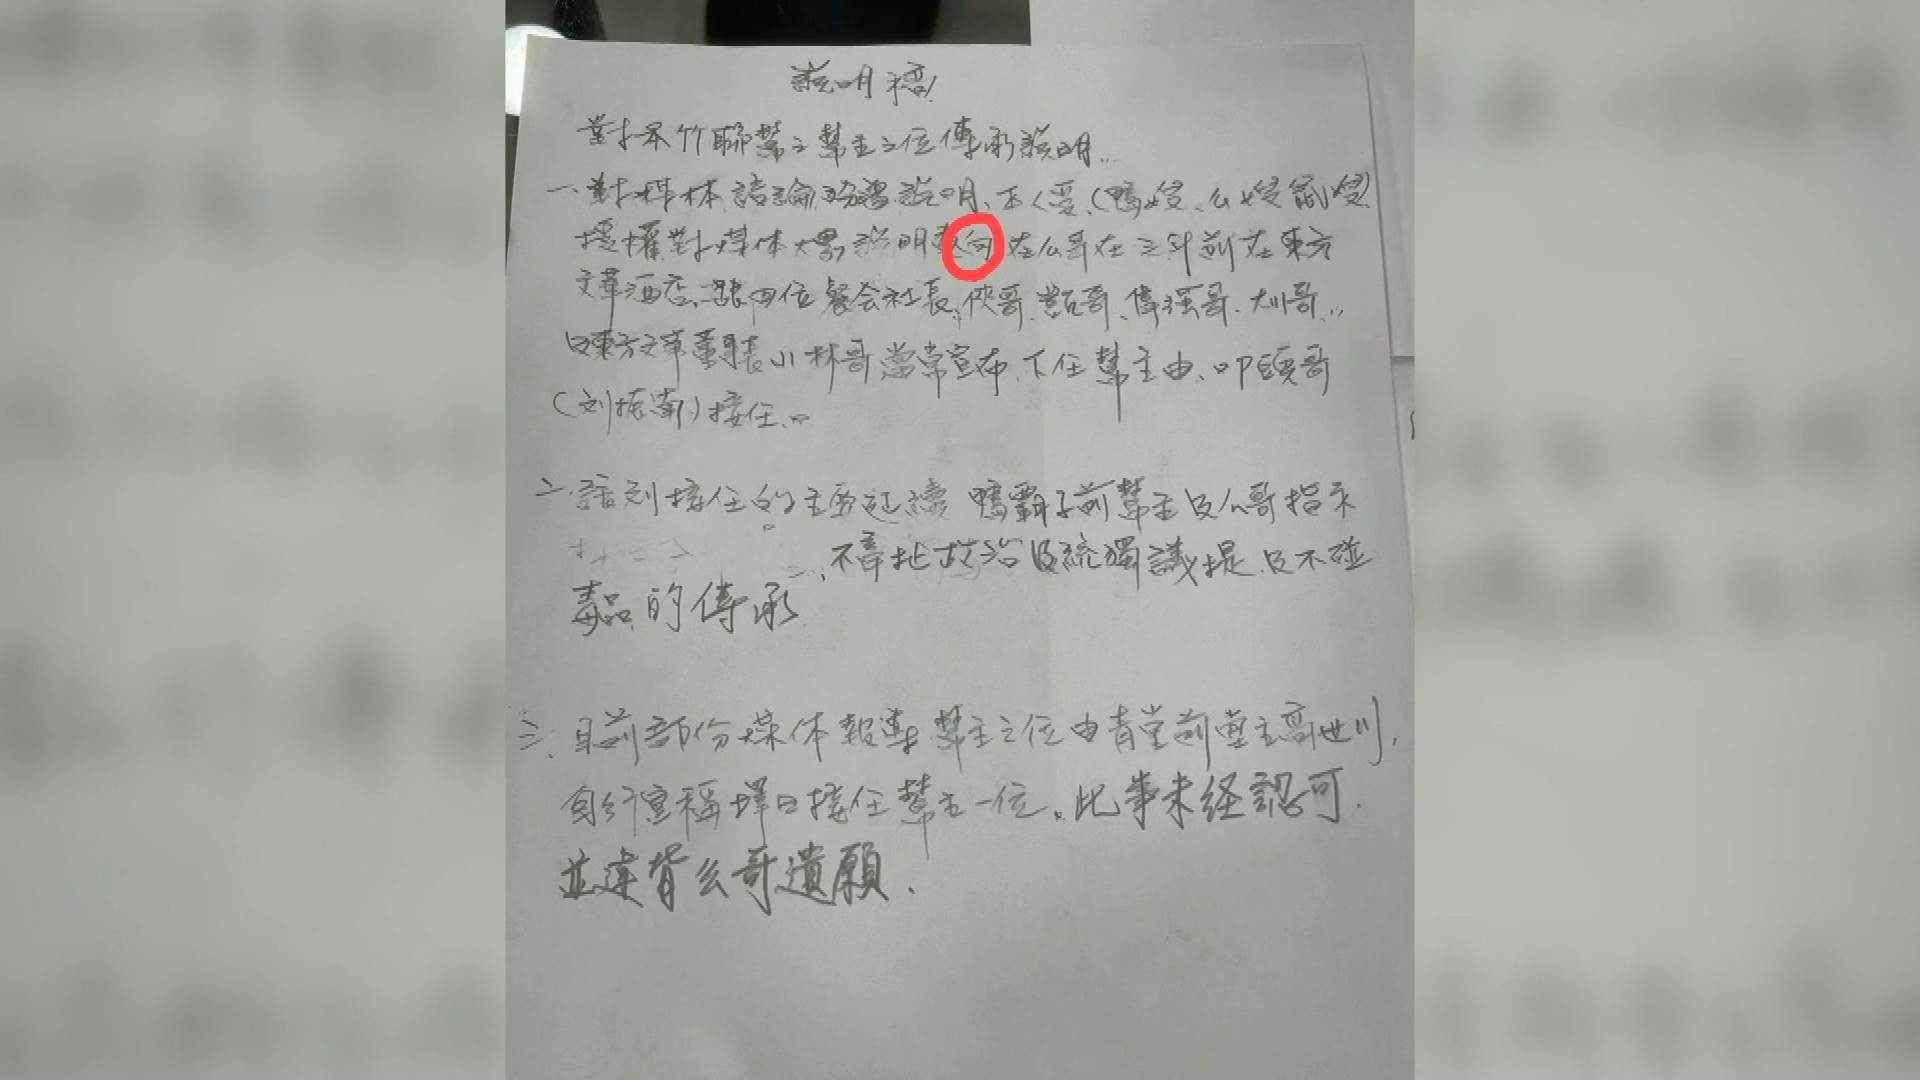 說明稿
對本竹聯幫之幫主之位傳承說明...
一、對媒体 說明、本人受(鴨嫂、么嫂
授權對媒体大眾說明 向 在么哥在三年前在東方
文華酒店、跟四位餐会社長、俠哥、哥、偉強哥、大川哥...
及東方文華董事長小林哥當常宣布、下任幫主由、叩頭哥
(刘振南)接任、
二、話刘接任的主要延續 鴨霸子前幫主及么哥指示
不牽扯政治及統獨議提及不碰
毒品的傳承
三、目前部份媒体報導幫主之位由青堂前堂主高世川,
自行宣稱擇日接任幫主一位。此事未经認可.
並違背么哥遺願.